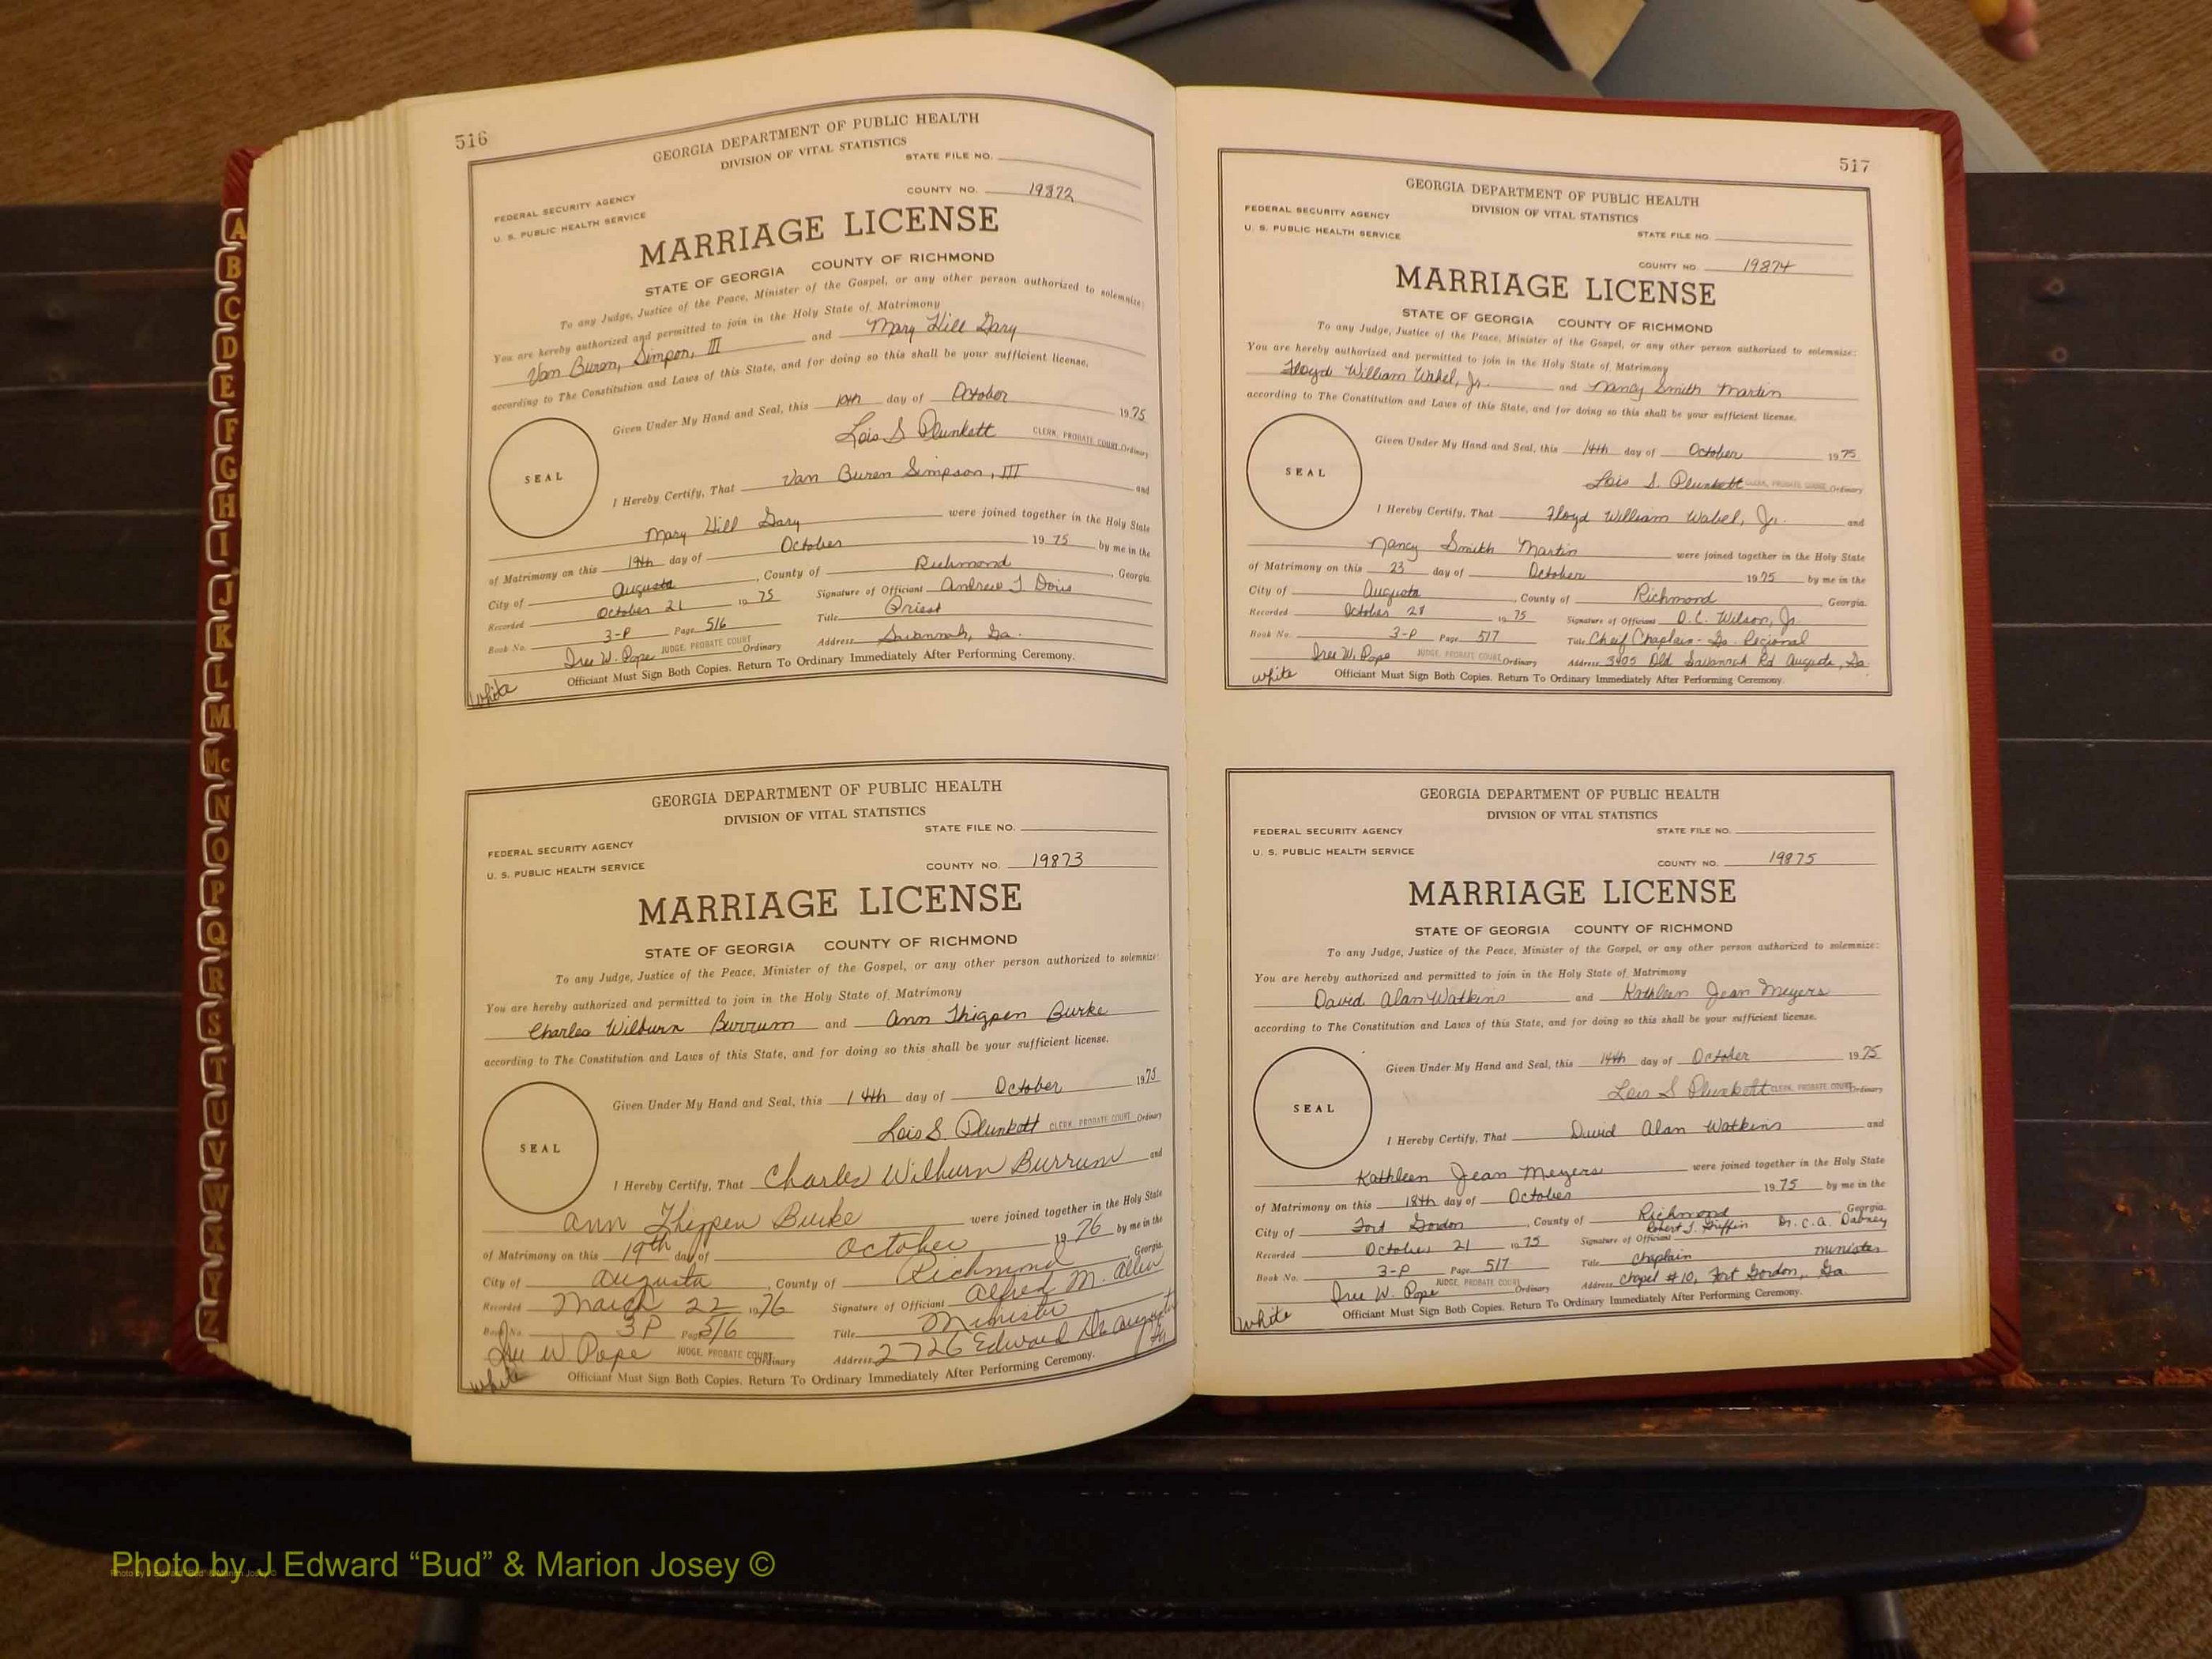 516
GEORGIA DEPARTMENT OF PUBLIC HEALTH
DIVISION OF VITAL STATISTICS
STATE FILE NO.
FEDERAL SECURITY AGENCY
U. S. PUBLIC HEALTH SERVICE
COUNTY NO. 19872
MARRIAGE LICENSE
STATE OF GEORGIA COUNTY OF RICHMOND
To any Judge, Justice of the Peace, Minister of the Gospel, or any other person authorized to solemnize:
You are hereby authorized and permitted to join in the Holy State of Matrimony
Van Buren, Simpon, III and Mary Hill Gary
according to The Constitution and Laws of this State, and for doing so this shall be your sufficient license.
Given Under My Hand and Seal, this 10th day of October 1975
Lois S Plunkett CLERK, PROBATE COURT Ordinary
SEAL
I Hereby Certify, That Van Buren Simpson, III and
Mary Hill Gary were joined together in the Holy State
of Matrimony on this 19th day of October 1975 by me in the
City of Augusta, County of Richmond, Georgia.
Recorded October 21 1975 Signature of Officiant Andrew J.
Book No. 3-P Page 516 Title Priest
W. Pope JUDGE, PROBATE COURT Ordinary Address Savannah, Ga.
Officiant Must Sign Both Copies. Return To Ordinary Immediately After Performing Ceremony.
White
GEORGIA DEPARTMENT OF PUBLIC HEALTH
DIVISION OF VITAL STATISTICS
STATE FILE NO.
FEDERAL SECURITY AGENCY
U. S. PUBLIC HEALTH SERVICE
COUNTY NO. 19873
MARRIAGE LICENSE
STATE OF GEORGIA COUNTY OF RICHMOND
To any Judge, Justice of the Peace, Minister of the Gospel, or any other person authorized to solemnize:
You are hereby authorized and permitted to join in the Holy State of Matrimony
Charles Wilburn Burrum and Ann Thigpen Burke
according to The Constitution and Laws of this State, and for doing so this shall be your sufficient license.
Given Under My Hand and Seal, this 14th day of October 1975
Lois S. Plunkett CLERK, PROBATE COURT Ordinary
SEAL
I Hereby Certify, That Charles Wilburn Burrum and
Ann Thigpen Burke were joined together in the Holy State
of Matrimony on this 19th day of October 1976 by me in the
City of Augusta, County of Richmond, Georgia.
Recorded March 22 1976 Signature of Officiant Alfred M. Allen
Book No. 3P Page 516 Title Minister
W. Pope JUDGE, PROBATE COURT Ordinary Address 2726 Edward Dr Augusta Ga
Officiant Must Sign Both Copies. Return To Ordinary Immediately After Performing Ceremony.
white
517
GEORGIA DEPARTMENT OF PUBLIC HEALTH
DIVISION OF VITAL STATISTICS
FEDERAL SECURITY AGENCY
U. S. PUBLIC HEALTH SERVICE
STATE FILE NO.
COUNTY NO. 19874
MARRIAGE LICENSE
STATE OF GEORGIA COUNTY OF RICHMOND
To any Judge, Justice of the Peace, Minister of the Gospel, or any other person authorized to solemnize:
You are hereby authorized and permitted to join in the Holy State of Matrimony
Floyd William Wabel, Jr. and Nancy Smith Martin
according to The Constitution and Laws of this State, and for doing so this shall be your sufficient license.
Given Under My Hand and Seal, this 14th day of October 1975
Lois S. Plunkett CLERK, PROBATE COURT Ordinary
SEAL
I Hereby Certify, That Floyd William Wabel, Jr. and
Nancy Smith Martin were joined together in the Holy State
of Matrimony on this 23 day of October 1975 by me in the
City of Augusta, County of Richmond, Georgia.
Recorded October 1975 Signature of Officiant O.C. Wilson, Jr.
Book No. 3-P Page 517 Title Cheif Chaplain - Ga. Regional
W. Pope JUDGE, PROBATE COURT Ordinary Address 3405 Old Savannah Rd Augusta, Ga.
white Officiant Must Sign Both Copies. Return To Ordinary Immediately After Performing Ceremony.
GEORGIA DEPARTMENT OF PUBLIC HEALTH
DIVISION OF VITAL STATISTICS
FEDERAL SECURITY AGENCY
STATE FILE NO.
U. S. PUBLIC HEALTH SERVICE
COUNTY NO. 19875
MARRIAGE LICENSE
STATE OF GEORGIA COUNTY OF RICHMOND
To any Judge, Justice of the Peace, Minister of the Gospel, or any other person authorized to solemnize:
You are hereby authorized and permitted to join in the Holy State of Matrimony
David Alan Watkins and Kathleen Jean Meyers
according to The Constitution and Laws of this State, and for doing so this shall be your sufficient license.
Given Under My Hand and Seal, this 14th day of October 1975
Lois S Plunkett CLERK, PROBATE COURT Ordinary
SEAL
I Hereby Certify, That David Alan Watkins and
Kathleen Jean Meyers were joined together in the Holy State
of Matrimony on this 18th day of October 1975 by me in the
City of Fort Gordon, County of Richmond Georgia.
Recorded October 21 1975 Signature of Officiant Robert J. Griffin Dr. C.A. Dabney
Book No. 3-P Page 517 Title Chaplain minister
W. Pope JUDGE, PROBATE COURT Ordinary Address Chapel #10, Fort Gordon, Ga.
White Officiant Must Sign Both Copies. Return To Ordinary Immediately After Performing Ceremony.
A
B
C
D
E
F
G
H
I
J
K
L
M
Mc
N
O
P
Q
R
S
T
U
V
W
X
Y
Z
Photo by J Edward “Bud” & Marion Josey ©